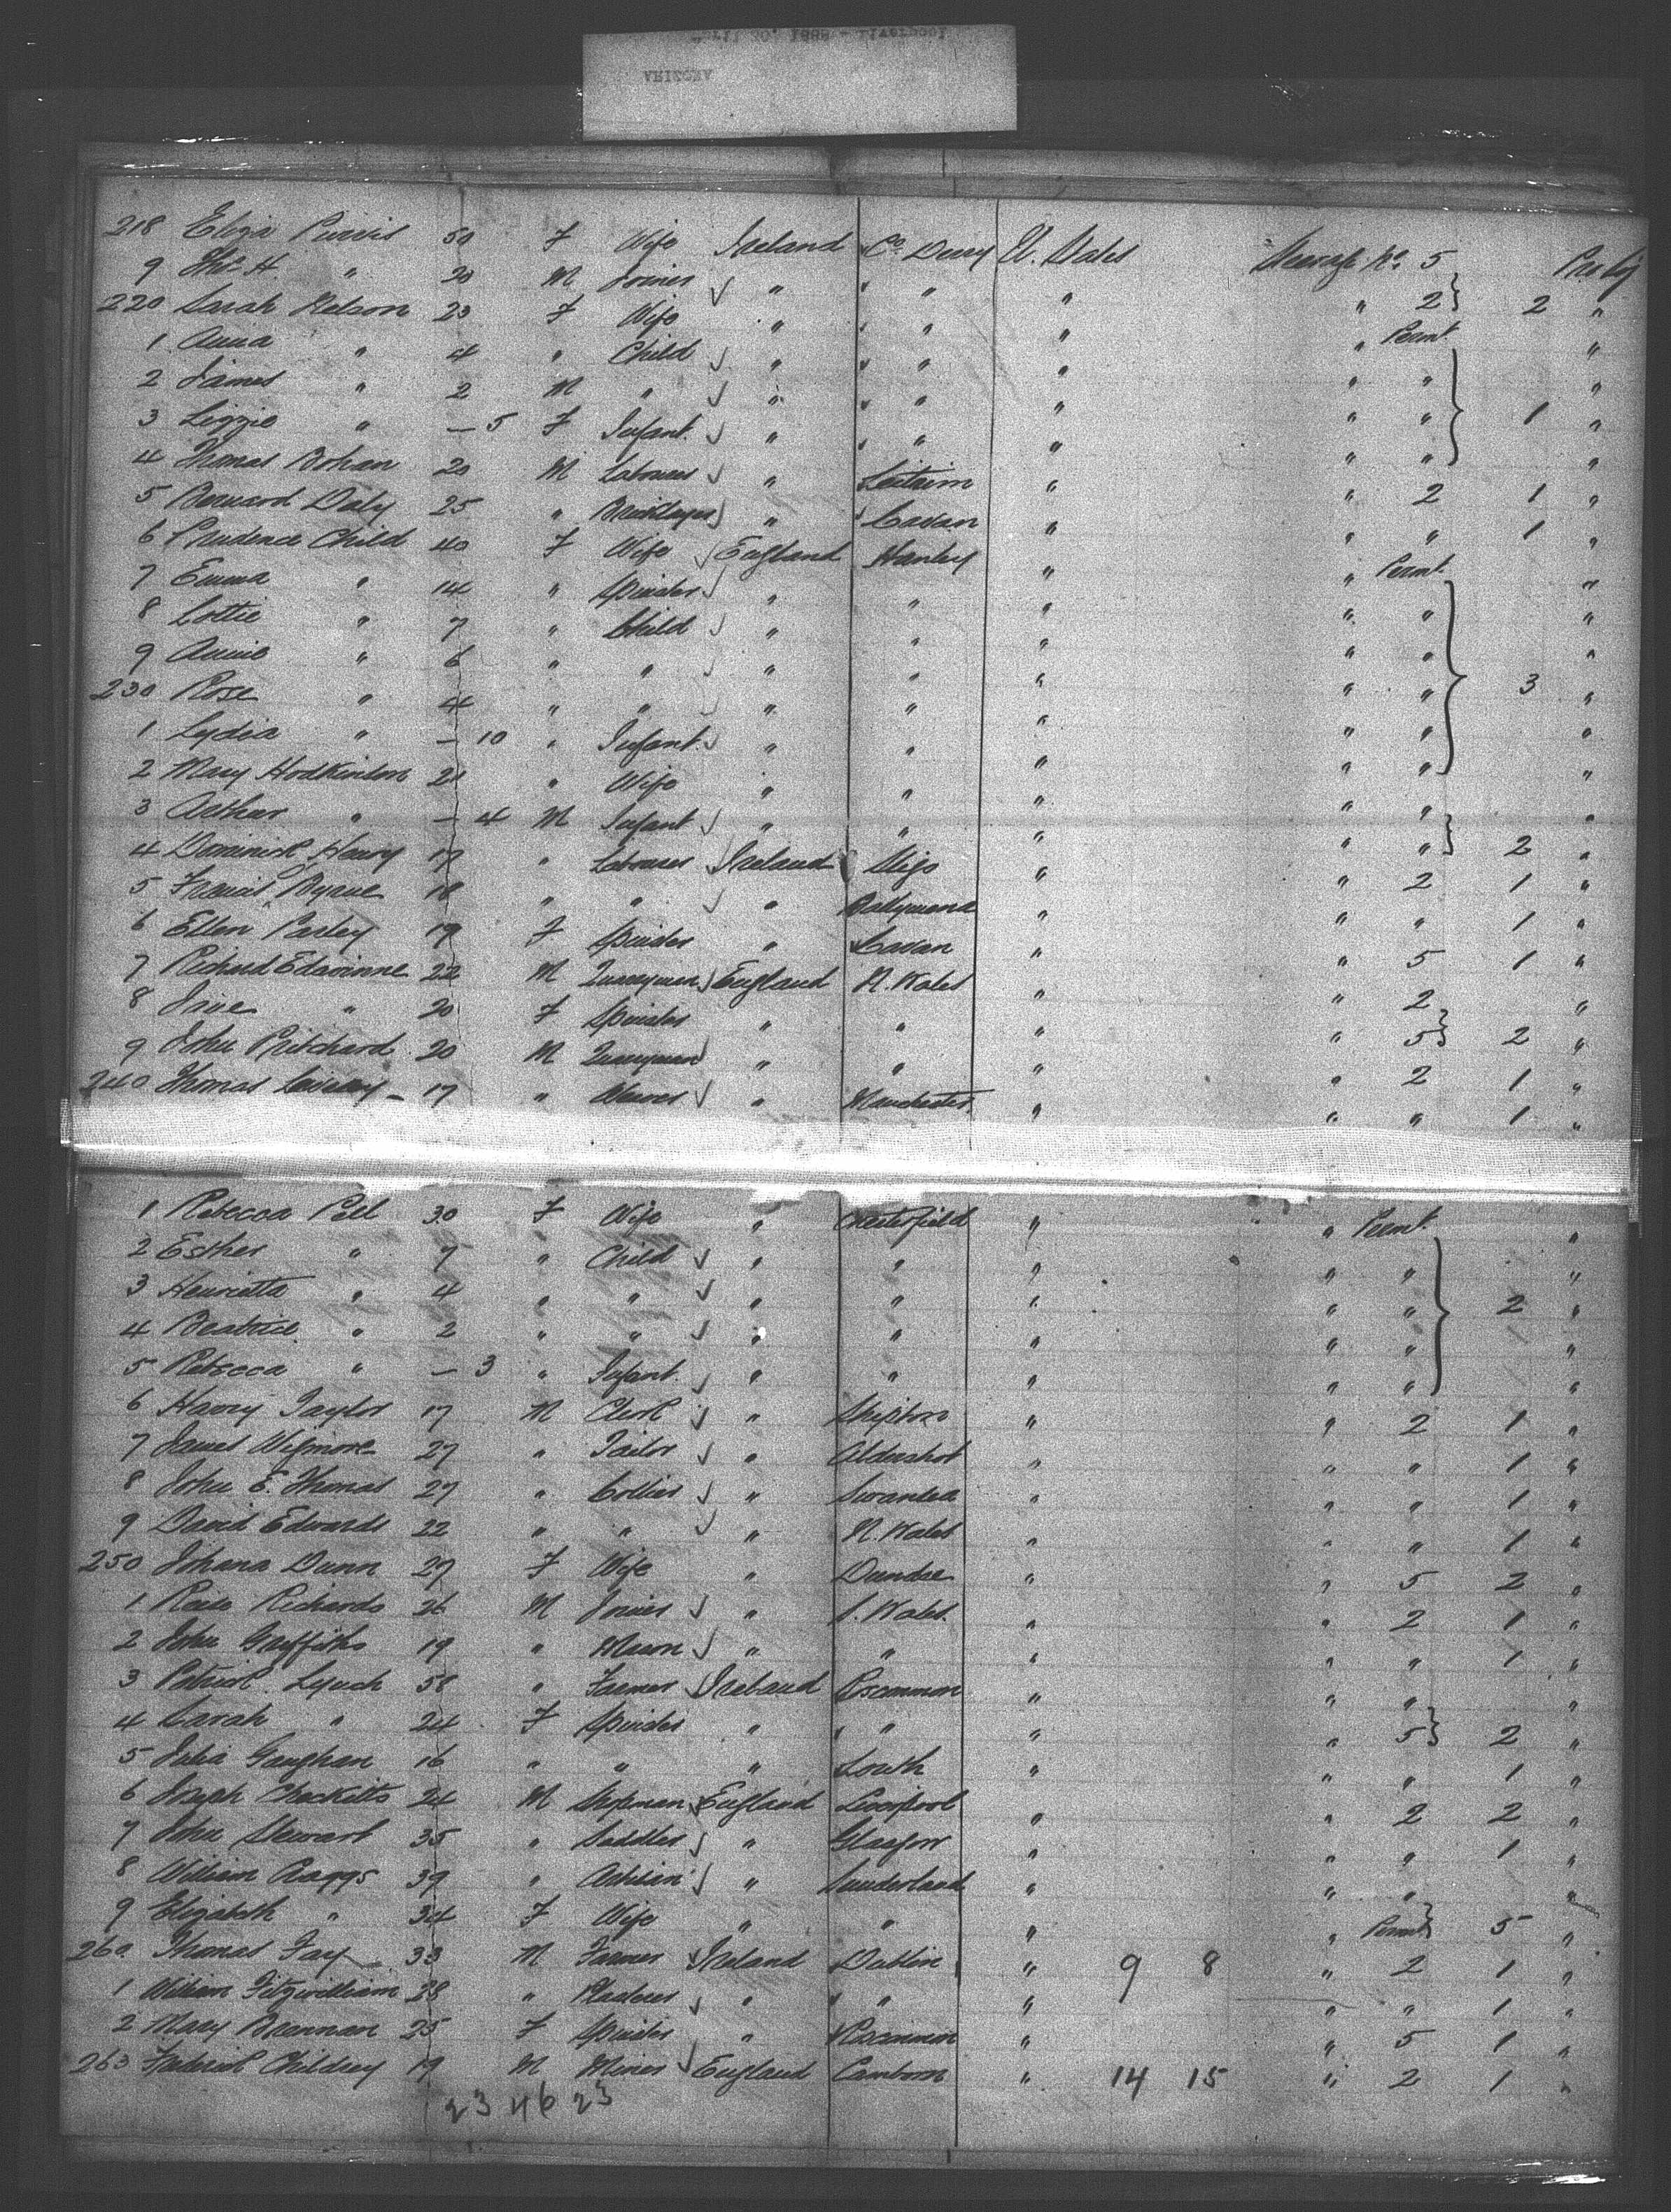 April 30, 1888 - Liverpool
ARIZONA
218 Eliza Purvis 50 F Wife Ireland Co. Derry U. States Steerage No. 5
9 Thos. H. " 20 M Joiner " " " " 2 2 "
220 Sarah Nelson 23 F Wife " " " " Permt. "
1 Annie " 4 " Child " " " " " "
2 James " 2 M " " " " " " 1 "
3 Lizzie " - 5 F Infant " " " " " "
4 Thomas Bohan 20 M Labourer " Leitrim " " 2 1 "
5 Bernard Daly 25 " Bricklayer " Cavan " " " 1 "
6 Prudence Child 40 F Wife England Hanley " " Permt. "
7 Emma " 14 " Spinster " " " " " "
8 Lottie " 7 " Child " " " " " "
9 Annie " 6 " " " " " " " 3 "
230 Rose " 4 " " " " " " " "
1 Lydia " - 10 " Infant " " " " " "
2 Mary Hodkinson 21 " Wife " " " " " "
3 Arthur " - 4 M Infant " " " " " 2 "
4 Dominick Henry 17 " Labourer Ireland Sligo " " 2 1 "
5 Francis Byrne 18 " " " Ballymena " " " 1 "
6 Ellen Parley 19 F Spinster " Cavan " " 5 1 "
7 Richard 22 M Quarryman England N. Wales " " 2 "
8 " 20 F Spinster " " " " 5 2 "
9 John Pritchard 20 M Quarryman " " " " 2 1 "
240 Thomas 17 " Weaver " Manchester " " " 1 "
1 Rebecca Pell 30 F Wife " Chesterfield " " Permt. "
2 Esther " 7 " Child " " " " " "
3 Henrietta " 4 " " " " " " " 2 "
4 Beatrice " 2 " " " " " " " "
5 Rebecca " - 3 " Infant " " " " " "
6 Harry Taylor 17 M Clerk " Shipton " " 2 1 "
7 James Wigmore 27 " Tailor " Aldershot " " " 1 "
8 John E. Thomas 27 " Collier " Swansea " " " 1 "
9 David Edwards 22 " " " N. Wales " " " 1 "
250 Johana Dunn 27 F Wife " Dundee " " 5 2 "
1 Rees Richards 26 M Joiner " S. Wales " " 2 1 "
2 John Griffiths 19 " Mason " " " " " 1 "
3 Patrick Lynch 58 " Farmer Ireland Roscommon " " " "
4 Sarah " 24 F Spinster " " " " 5 2 "
5 Julia Gaughan 16 " " " Louth " " " 1 "
6 Joseph Checkitts 24 M Shopman England Liverpool " " 2 2 "
7 John Stewart 35 " Saddler " Glasgow " " " 1 "
8 William Raggs 39 " Artisan " Sunderland " " " "
9 Elizabeth " 34 F Wife " " " " Permt. 5 "
260 Thomas Fay 33 M Farmer Ireland Dublin " 9 8 " 2 1 "
1 William Fitzwilliam 28 " Plasterer " " " " " 1 "
2 Mary Brennan 25 F Spinster " Roscommon " " 5 1 "
263 Frederick Childrey 19 M Miner England Camborn " 14 15 " 2 1 "
23 46 23